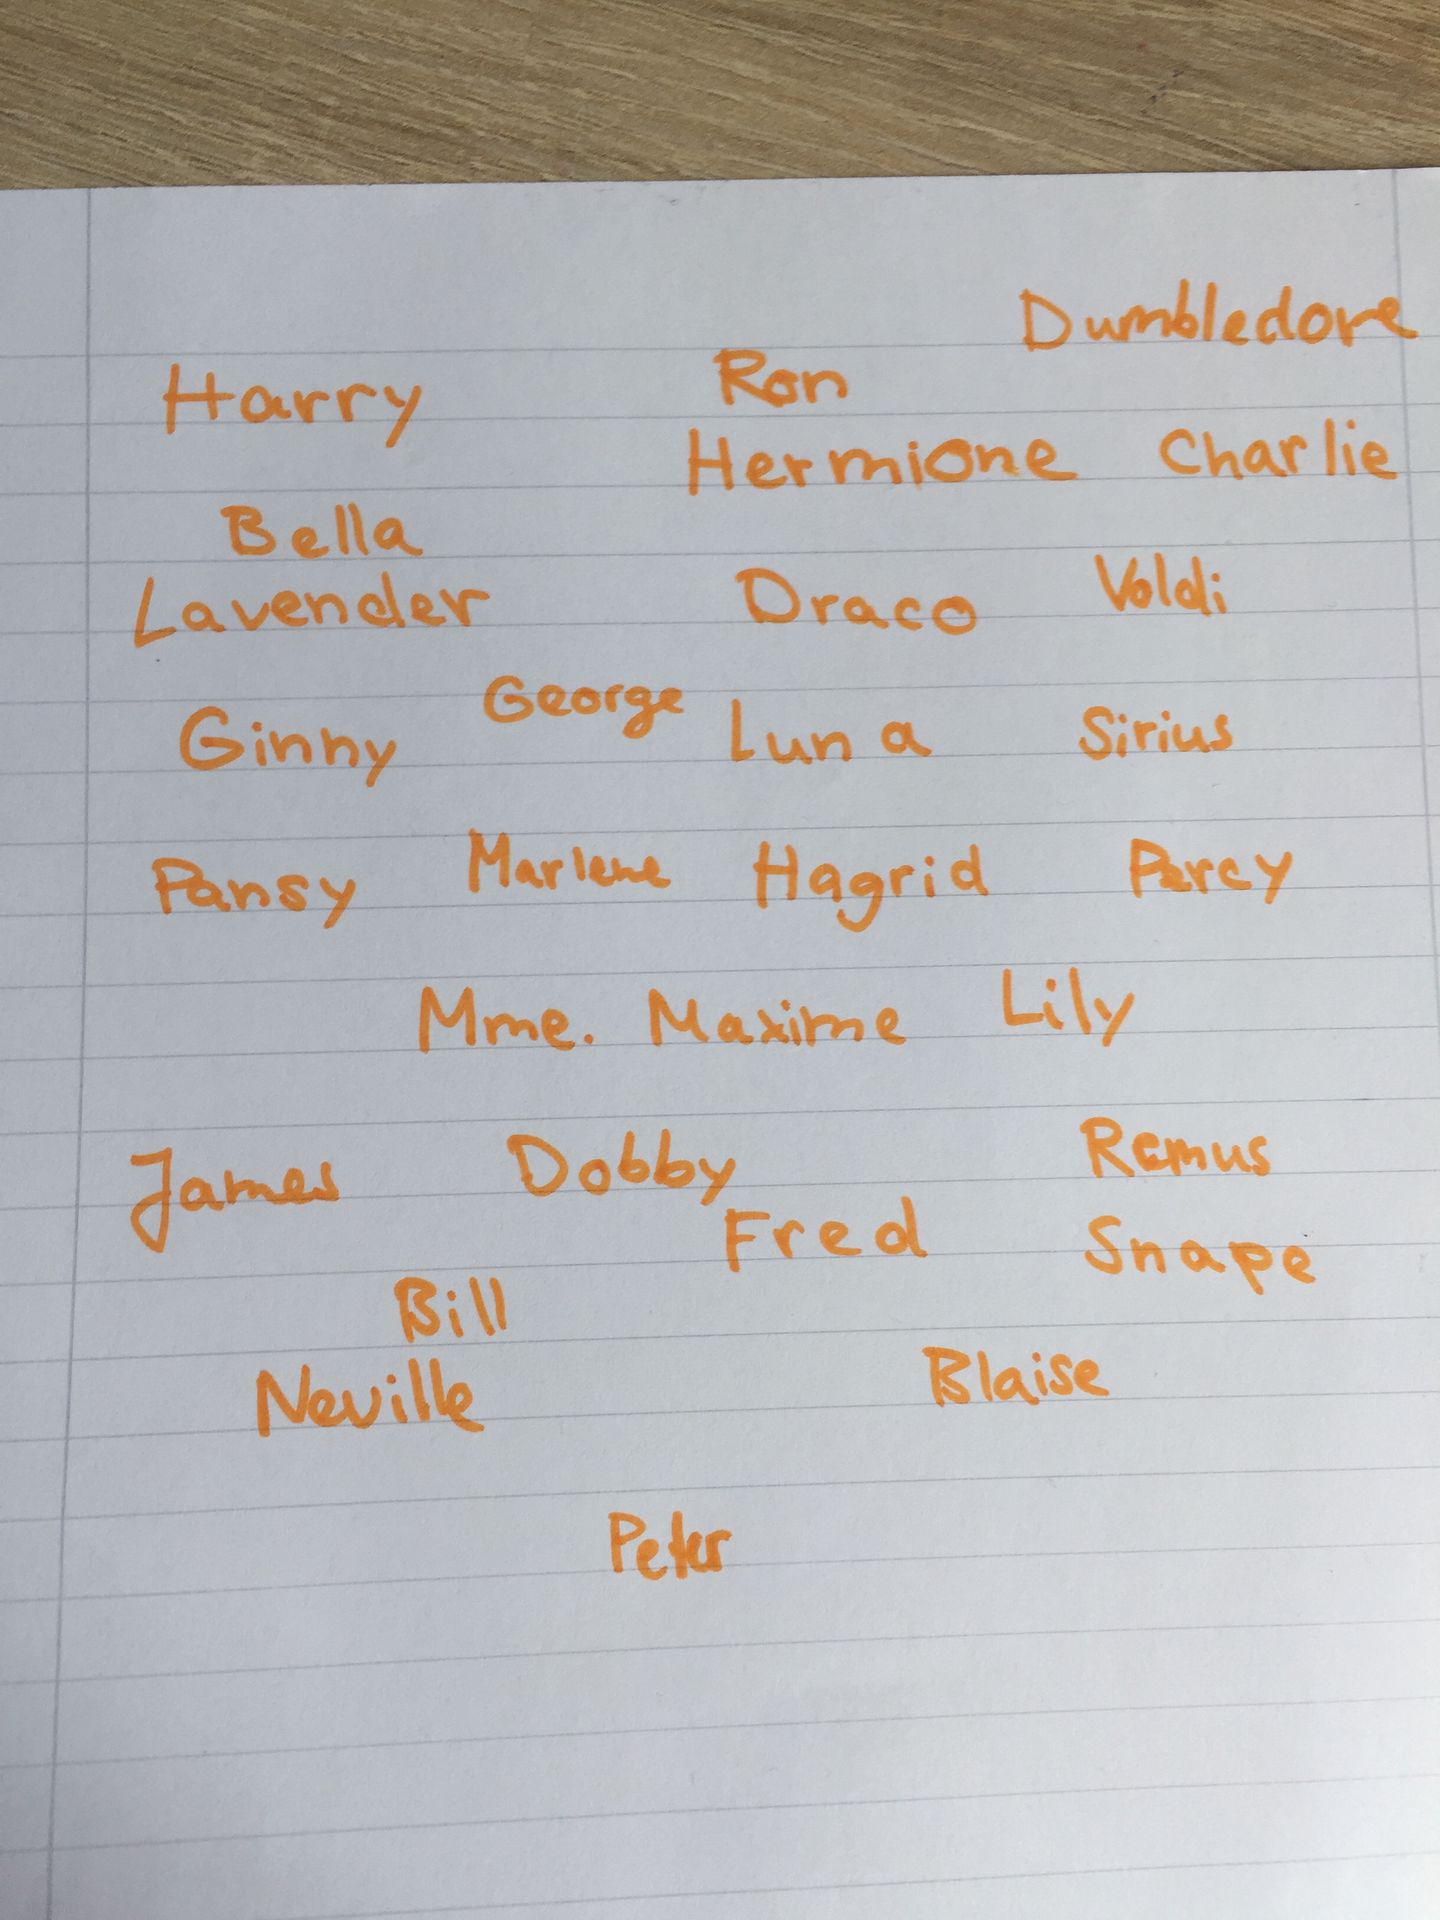 Dumbledore
Harry Ron
Hermione Charlie
Bella
Lavender Draco Voldi
George
Ginny Luna Sirius
Pansy Marlene Hagrid Percy
Mme. Maxime Lily
James Dobby Remus
Fred Snape
Bill
Neville Blaise
Peter